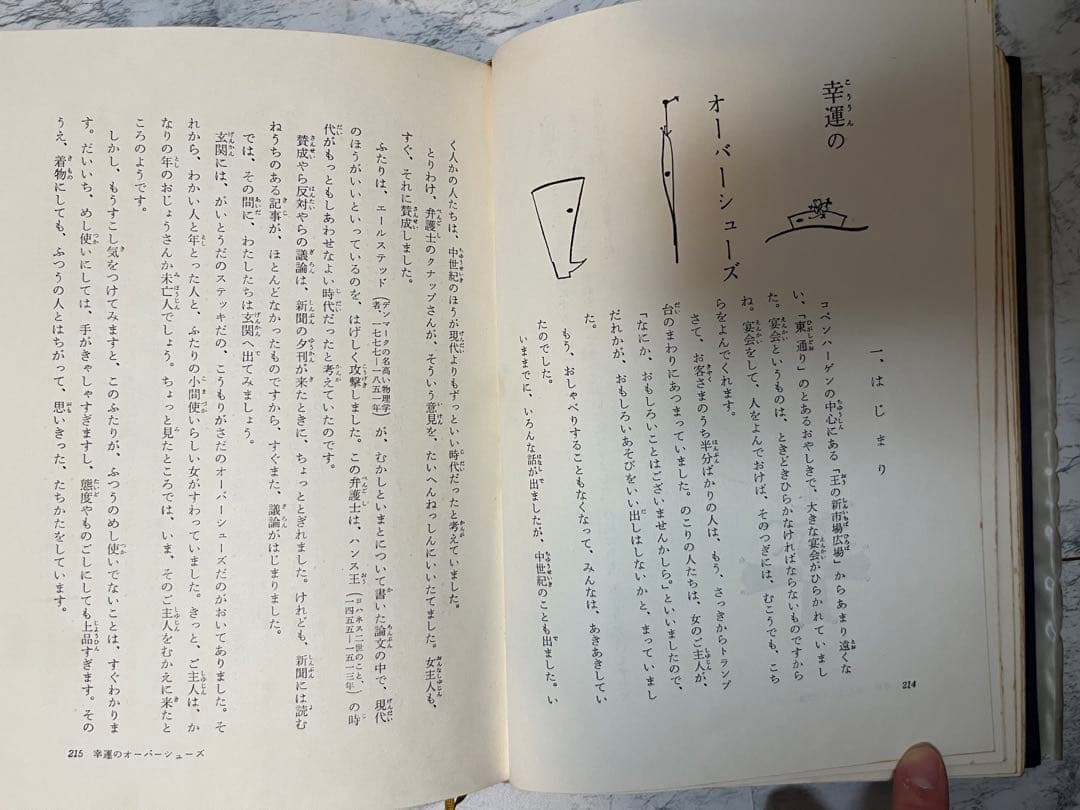 幸運の
オーバーシューズ
一、はじまり
コペンハーゲンの中心にある「王の新市場広場」からあまり遠くな
い、「東通り」のとあるおやしきで、大きな宴会がひらかれていまし
た。宴会というものは、ときどきひらかなければならないものですから
ね。宴会をして、人をよんでおけば、そのつぎには、むこうでも、こち
らをよんでくれます。
さて、お客さまのうち半分ばかりの人は、もう、さっきからトランプ
台のまわりにあつまっていました。のこりの人たちは、女のご主人が、
「なにか、おもしろいことはございませんかしら。」といいましたので、
だれかが、おもしろいあそびをいい出しはしないかと、まっていまし
た。
もう、おしゃべりすることもなくなって、みんなは、あきあきしてい
たのでした。
いままでに、いろんな話が出ましたが、中世紀のことも出ました。い
214
く人かの人たちは、中世紀のほうが現代よりもずっといい時代だったと考えていました。
とりわけ、弁護士のクナップさんが、そういう意見を、たいへんねっしんにいいたてました。女主人も、
すぐ、それに賛成しました。
ふたりは、エールステッド(デンマークの名高い物理学者、一七七七―一八五一年)が、むかしといまとについて書いた論文の中で、現代
のほうがいいといっているのを、はげしく攻撃しました。この弁護士は、ハンス王(ヨハネス二世のこと、一四五五―一五一三年)の時
代がもっともしあわせなよい時代だったと考えていたのです。
賛成やら反対やらの議論は、新聞の夕刊が来たときに、ちょっととぎれました。けれども、新聞には読む
ねうちのある記事が、ほとんどなかったものですから、すぐまた、議論がはじまりました。
では、その間に、わたしたちは玄関へ出てみましょう。
玄関には、がいとうだのステッキだの、こうもりがさだのオーバーシューズだのがおいてありました。そ
れから、わかい人と年とった人と、ふたりの小間使いらしい女がすわっていました。きっと、ご主人は、か
なりの年のおじょうさんか未亡人でしょう。ちょっと見たところでは、いま、そのご主人をむかえに来たと
ころのようです。
しかし、もうすこし気をつけてみますと、このふたりが、ふつうのめし使いでないことは、すぐわかりま
す。だいいち、めし使いにしては、手がきゃしゃすぎますし、態度やものごしにしても上品すぎます。その
うえ、着物にしても、ふつうの人とはちがって、思いきった、たちかたをしています。
215 幸運のオーバーシューズ